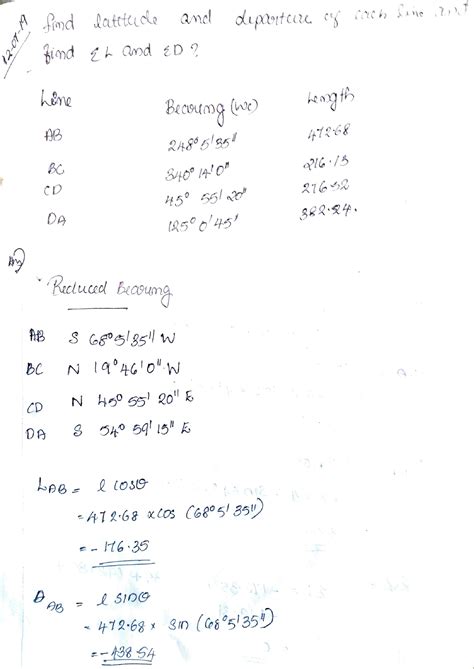 12-01-A
find latitude and departure of each line and
find ΣL and ΣD?
Line Bearing (WC) Length
AB 248° 5' 35" 472.68
BC 340° 14' 0" 216.13
CD 45° 55' 20" 276.52
DA 125° 0' 45' 382.24.
Ans)
Reduced Bearing
AB S 68° 5' 35" W
BC N 19° 46' 0" W
CD N 45° 55' 20" E
DA S 54° 59' 15" E
LAB = l cosθ
= 472.68 x cos (68° 5' 35")
= -176.35
DAB = l sinθ
= 472.68 x sin (68° 5' 35")
= -438.54